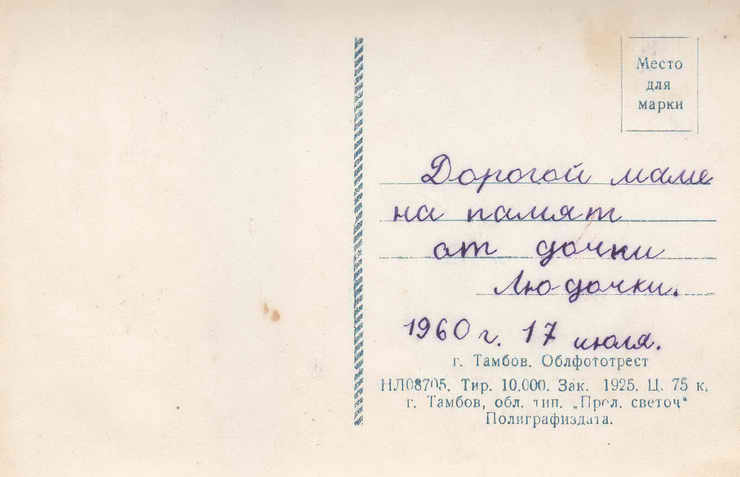 Место
для
марки
Дорогой маме
на памят
от дочки
Людочки.
1960 г. 17 июля.
г. Тамбов. Облфототрест
НЛ08705. Тир. 10.000. Зак. 1925. Ц. 75 к.
г. Тамбов, обл. тип. „Прол. светоч“
Полиграфиздата.